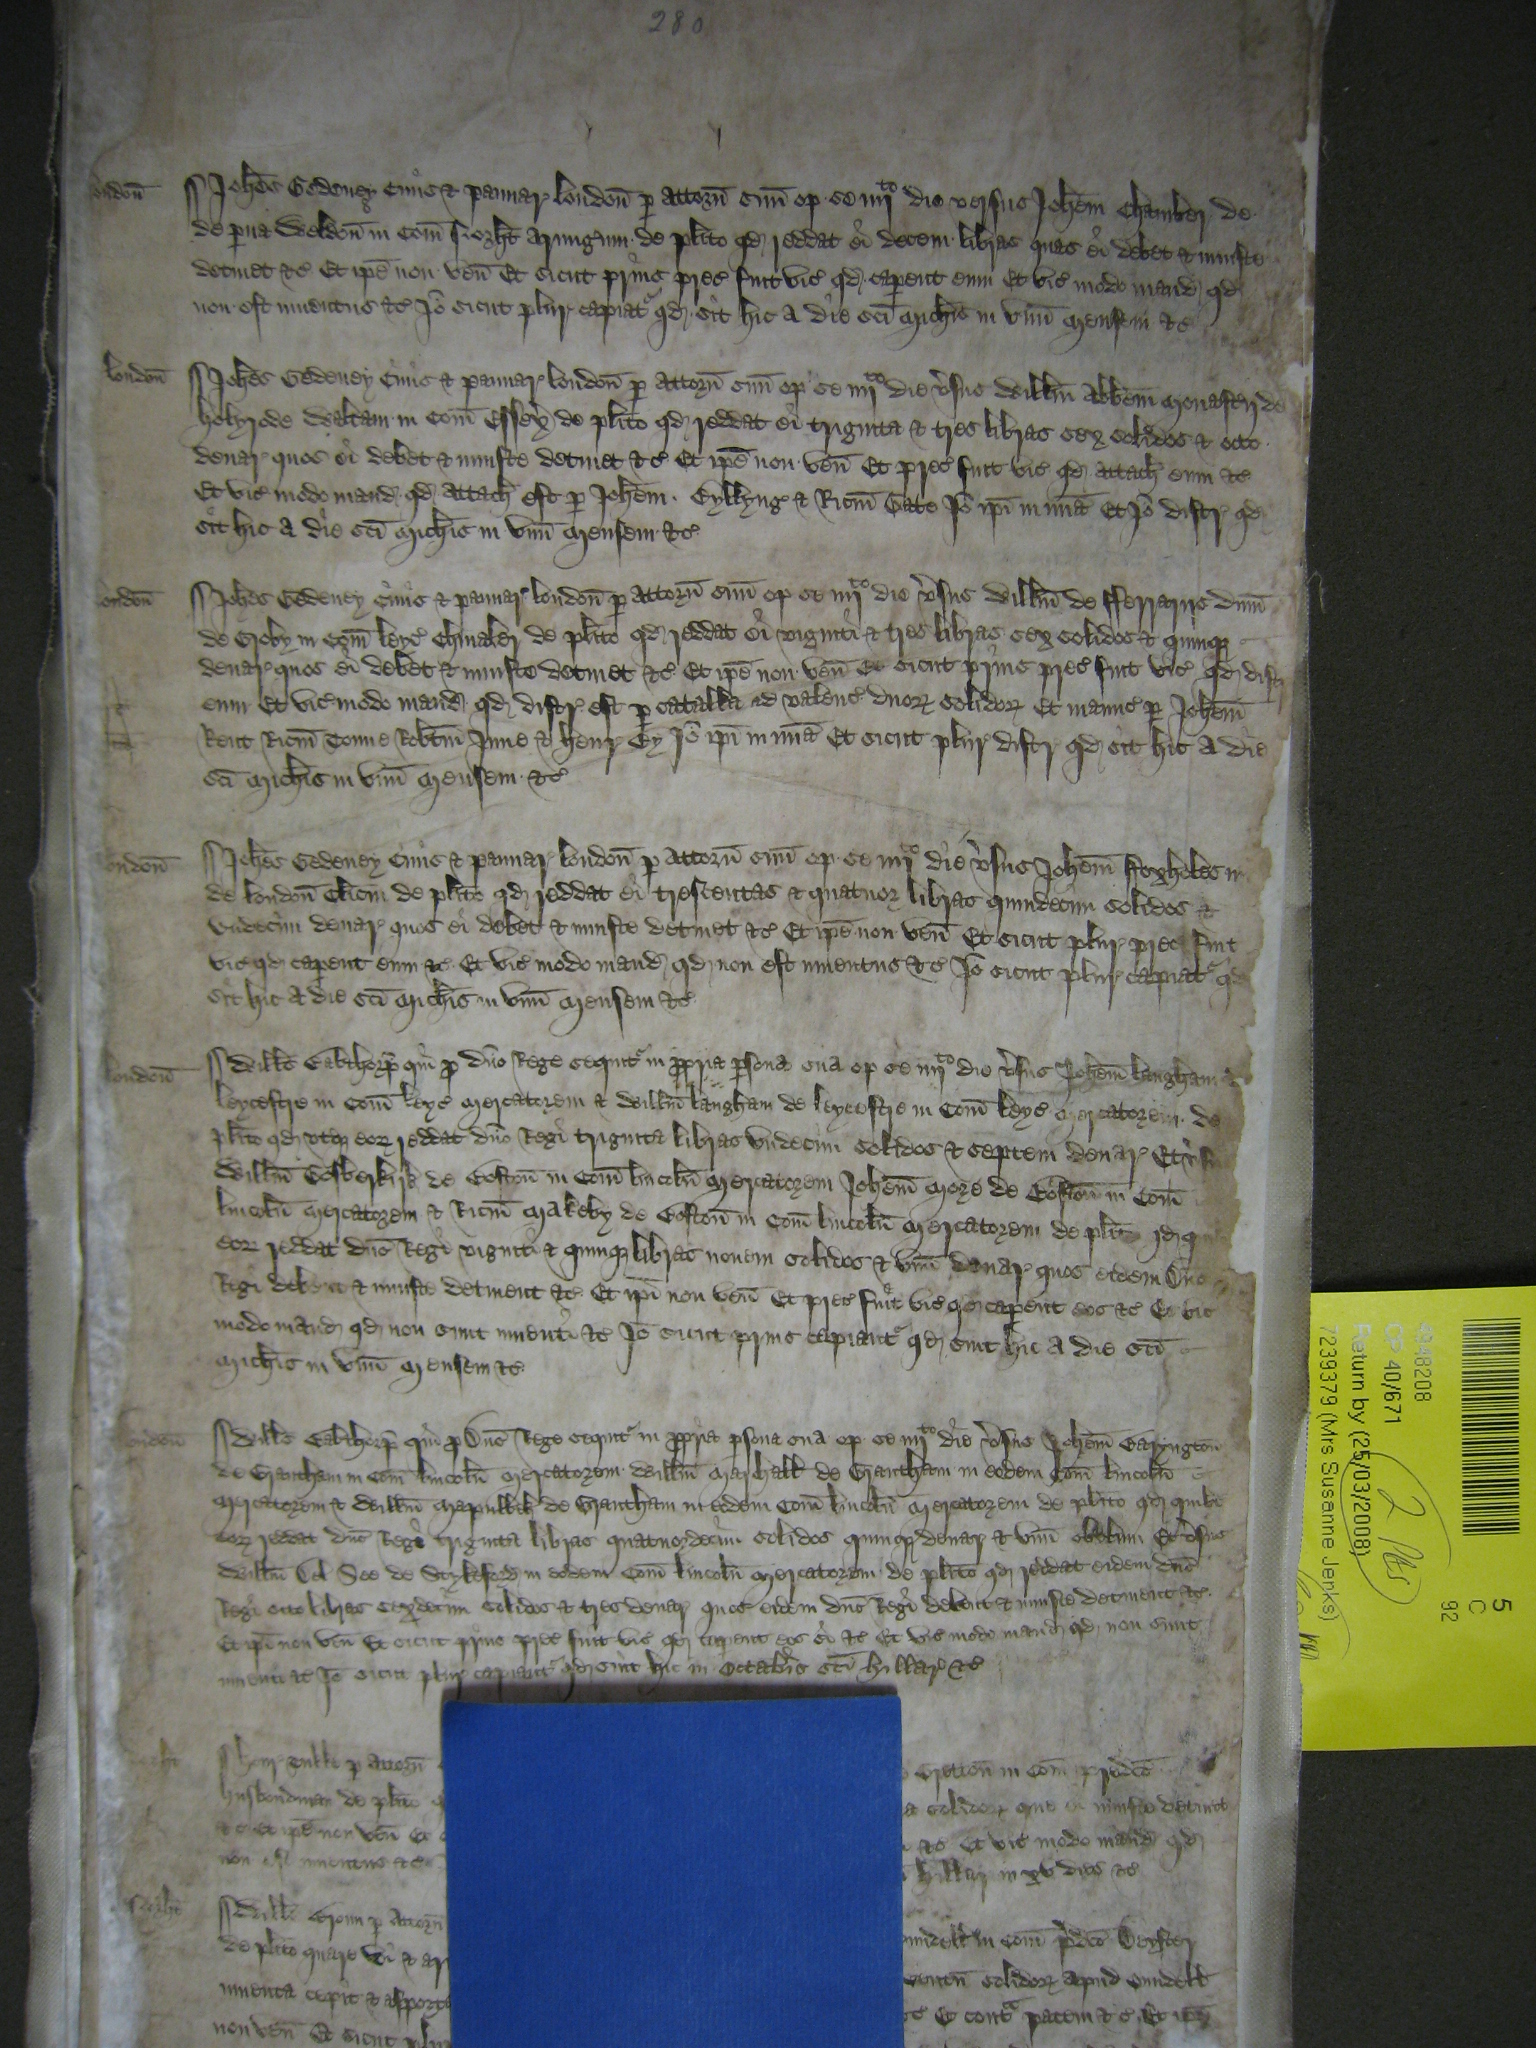 280
london̄ Joħes Gedeney Civis & pannar london̄ p attorn̄ suū op se iiijto die versus Joħem Chamber de
de pua Weldon̄ in Com̄ Norħt Armigum de plito qd reddat ei decem libras quas ei debet & iniuste
detinet &c Et ipe non ven̄ Et sicut prius prec fuit vic qd caperet eum Et vic modo mand qd
non est inventus &c Jo sicut plur capiat qd sit hic a die sci Micħis in unū mensem &c
london̄ Joħes Gedeney Civis & pannar london̄ p attorn̄ suū op se iiijto die vsus Willm̄ Abbem Monasterij de
holyrode Waltam in Com̄ Essex de plito qd reddat ei triginta & tres libras sex solidos & octo
denar quos ei debet & iniuste detinet &c Et ipe non ven̄ Et prec fuit vic qd attach eum &c
Et vic modo mand qd attach est p Joħem Gyllyng & Ricm̄ Gate Jo ipi in mia Et Jo distr qd
sit hic a die sci Micħis in unū mensem &c
london̄ Joħes Gedeney Civis & pannar london̄ p attorn̄ suū op se iiijto die vsus Willm̄ de fferrariis dnm̄
de Groby in Com̄ leyc Chivaler de plito qd reddat ei viginti & tres libras sex solidos & quinq
denar quos ei debet & iniuste detinet &c Et ipe non ven̄ Et sicut prius prec fuit vic qd distr
eum Et vic modo mand qd distr est p catalla ad valenc duor solidor Et manuc p Joħem
Kent Ricm̄ Tonne Robtm̄ Inne & henr Ey Jo ipi in mia Et sicut plur distr qd sit hic a die
sci Micħis in unū mensem &c
london̄ Joħes Gedeney Civis & pannar london̄ p attorn̄ suū op se iiijto die vsus Joħem ffoxholes
de london̄ Clicum de plito qd reddat ei trescentas & quatuor libras quindecim solidos &
undecim denar quos ei debet & iniuste detinet &c Et ipe non ven̄ Et sicut plur prec fuit
vic qd caperet eum &c Et vic modo mand qd non est inventus &c Jo sicut plur capiat qd
sit hic a die sci Micħis in unū mensem &c
london̄ Wills Calthorp qui p dno Rege sequit in ppria psona sua op se iiijto die vsus Joħem langham de
leycestre in Com̄ leyc mercatorem & Willm̄ langham de leycestre in Com̄ leyc mercatorem de
plito qd utq eor reddat dno Regi triginta libras undecim solidos & septem denar Et vsus
Willm̄ Gosberkirk de Boston̄ in Com̄ lincoln̄ mercatorem Joħem More de Boston̄ in Com̄
lincoln̄ mercatorem & Ricm̄ Makeby de Boston̄ in Com̄ lincoln̄ mercatorem de plito qd
eor reddat dno Regi viginti & quinq libras novem solidos & unū denar quos eidem Dno
Regi debent & iniuste detinent &c Et ipi non ven̄ Et prec fuit vic qd caperet eos &c Et vic
modo mand qd non sunt inventi &c Jo sicut prius capiant qd sint hic a die sci
Micħis in unū mensem &c
london̄ Wills Calthorp qui p Dno Rege sequit in ppria psona sua op se iiijto die vsus Joħem Caryngton
de Grantham in Com̄ lincoln̄ mercatorem Willm̄ Marshall de Grantham in eodem Com̄ lincoln̄
mercatorem & Willm̄ Chapulbek de Grantham in eodem Com̄ lincoln̄ mercatorem de plito qd quilibt
eor reddat dno Regi triginta libras quatuordecim solidos quinq denar & unū obolum Et vsus
Willm̄ Del See de Strykeford in eodem Com̄ lincoln̄ mercatorem de plito qd reddat eidem dno
Regi octo libras sexdecim solidos & tres denar quos eidem dno Regi debent & iniuste detinent &c
Et ipi non ven̄ Et sicut prius prec fuit vic qd caperet eos &c Et vic modo mand qd non sunt
inventi &c Jo sicut plur capiant qd sint hic in Octabis sci hillar &c
henr Tulle p attorn̄ Gretton̄ in Com̄ predco
husbondman de plito solidor que ei iniuste detinet
&c Et ipe non ven̄ Et &c Et vic modo mand qd
non est inventus &c hillar in xv dies &c
Norht Wills p attorn̄ in Com̄ pdco
de plito quare vi & ar solidor apud
inventa cepit & asporta Et contra pacem &c Et ipe
non ven̄ Et sicut plur
4948208
CP 40/671
Return by (25/03/2008)
7239379 (Mrs Susanne Jenks)
5
C
92